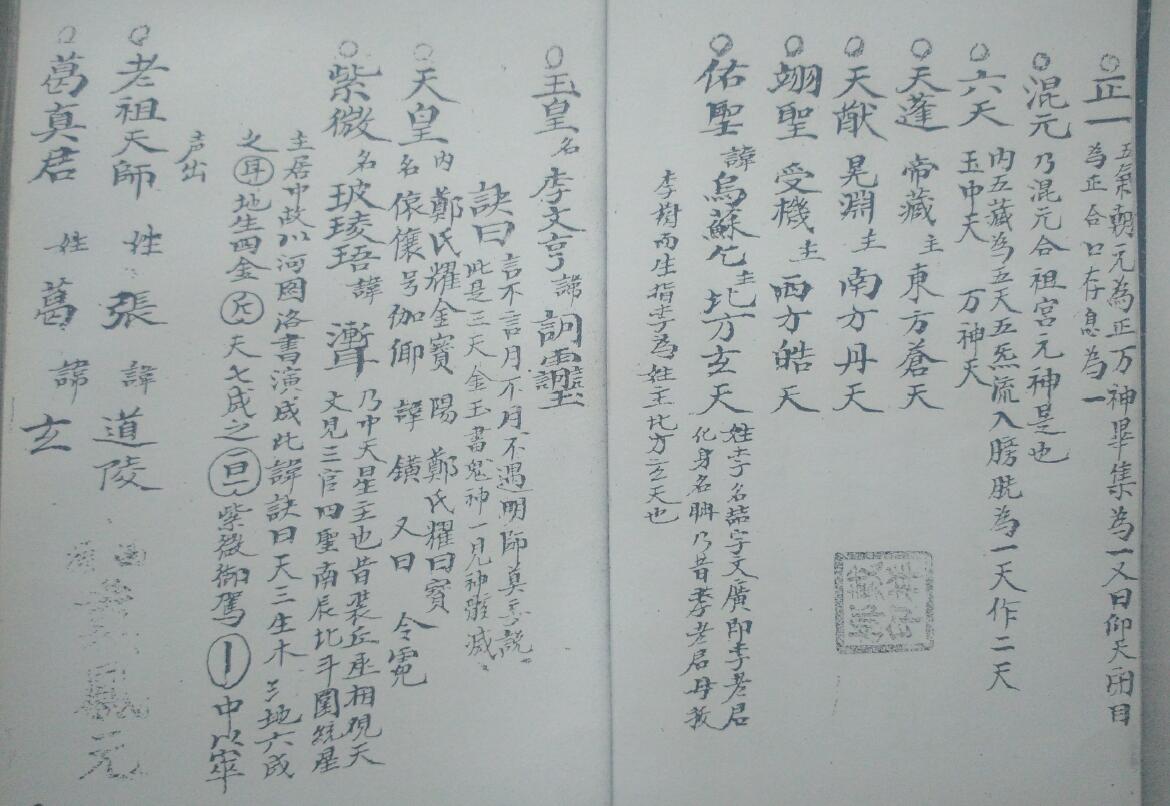 ○正一 五氣朝元為正万神畢集為一又曰仰天閉目
為正合口存息為一
○混元 乃混元合祖宮元神是也
○六天 內五藏為五天五炁流入膀胱為一天作二天
玉中天 万神天
○天蓬 帝藏 主東方蒼天
○天猷 晃淵 主南方丹天
○翊聖 受機 主西方皓天
○佑聖 諱烏蘇乞 主北方玄天 姓李名喆字文廣即李老君
化身名聃乃昔李老君母孕
李樹而生指李為姓王北方玄天也
○玉皇 名李文亨 諱
訣曰 言不言月不月不遇明師莫乱說
此是三天金玉書鬼神一見神形滅
○天皇 內鄭氏耀金寶 陽 鄭氏耀曰寶
名 号伽仰 諱鐄 又曰 令
○紫微 名玻琭珸 諱 乃中天星主也昔裴丘丞相視天
文見三官四聖南辰北斗圍繞星
主居中故以河图洛書演成此諱訣曰天三生木彡地六成
之耳地生四金斤天七成之 紫微御駕｜中以率
声出
○老祖天師 姓張 諱道陵
○葛真君 姓葛 諱玄